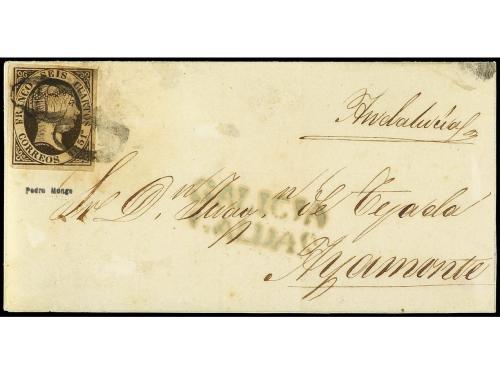 FRANCO SEIS CUARTOS
CORREOS 1851
Pedro Monge
Andalucía
Sr. Dn. Juan de Tejada
Ayamonte